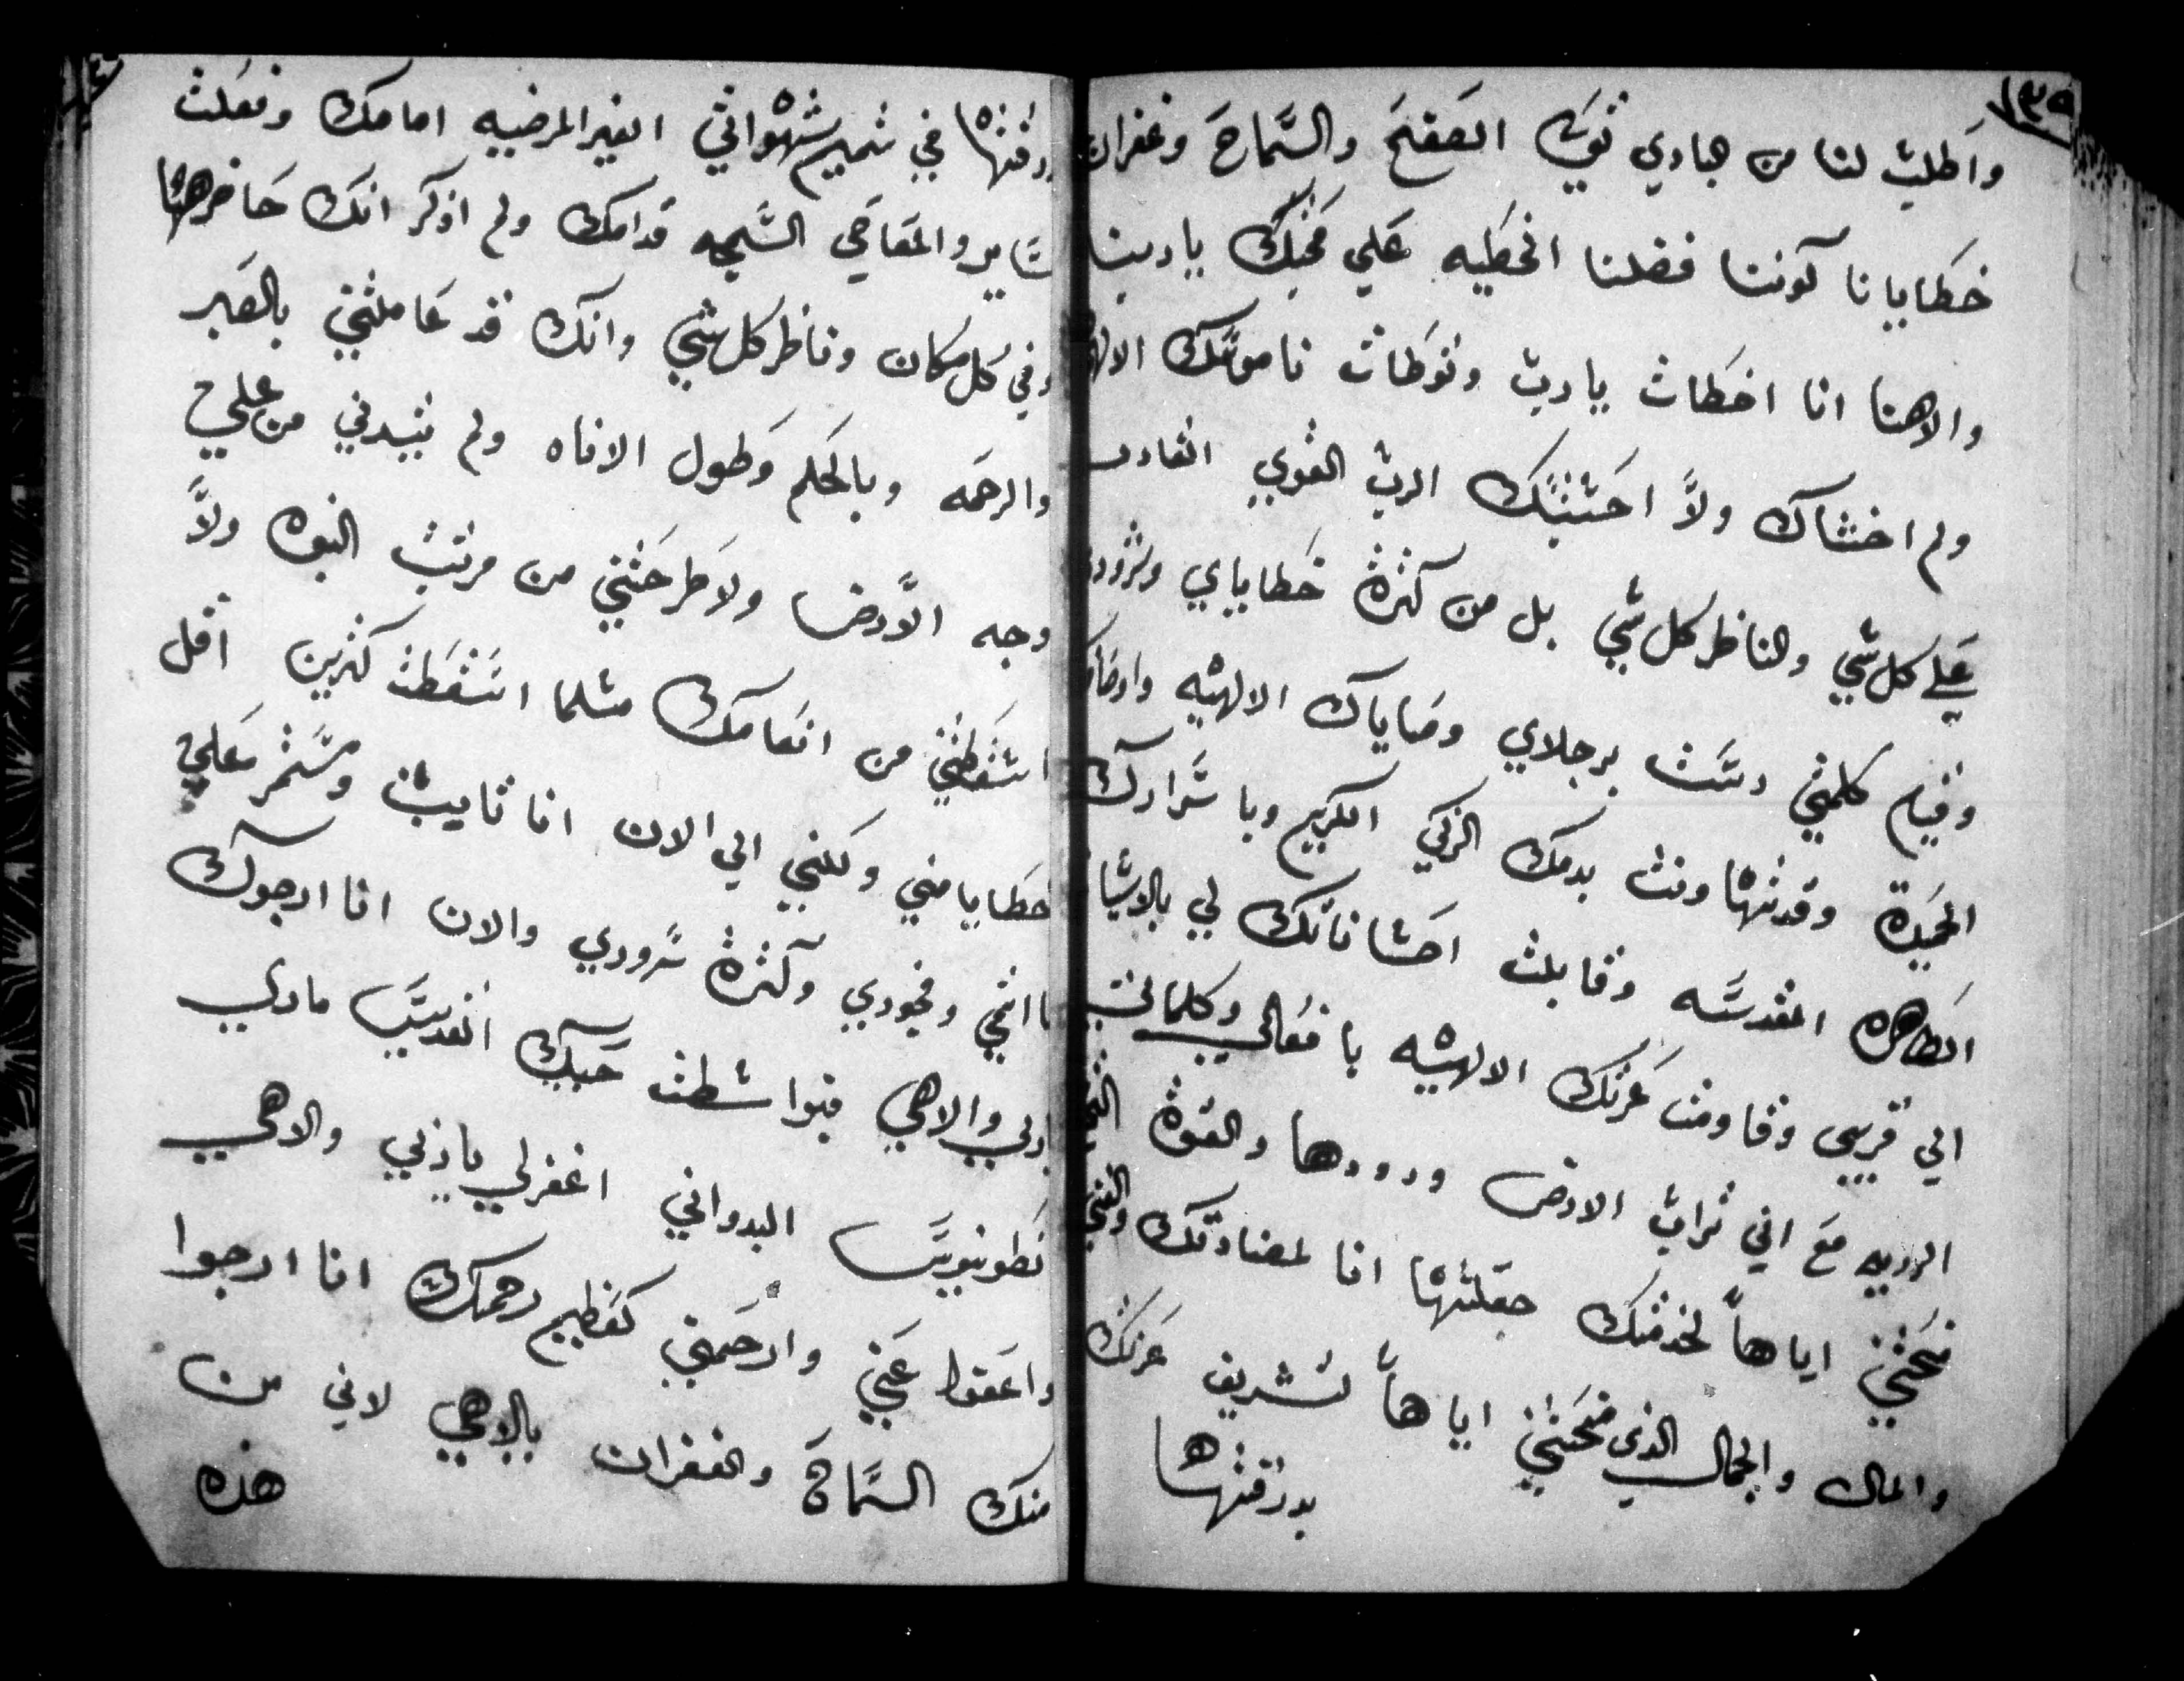 ١٣٩
واطلب لنا من هباري توك الصفح والسماح وغفران
خطايانا كوننا فضلنا الخطيه علي محبتك ياربنا
والاهنا انا اخطات يارب وتوطات ناموسك الالهي
ولم اخشاك ولا احسبتك الرب القوي القادر
علي كل شي والناظر كل شي بل من كثرة خطاياي وشرور
كلمتي دست برجلاي وصاياك الالهيه
الحميدة بدمك الزكي الكريم وباسرارك
الطاهره المقدسه وقابلت احساناتك لي بالاسيا
الي قريبي وقاومت عزتك الالهيه بافعالي وكلماتي
الرديه مع اني تراب الارض ودودها والقوة
منحتني اياها لخدمتك جعلتها انا لمضادتك
والمال والجمال الذي منحتني اياها لتشريف عزتك
بدرقتها
بدرقتها في تتميم شهواتي الغير المرضيه امامك وفعلت
ساير والمعاصي السمجه قدامك ولم اذكر انك حاضر هنا
وفي كل مكان وناظر كل شي وانك قد عاملتني بالصبر
والرحمه وبالحلم وطول الاناه ولم تبيدني من علي
وجه الارض ولا طرحتني من مرتبت البنوه ولا
اسقطتني من انعامك مثلما اسقطت كثيرين اقل
خطايا مني ولكنني الي الان انا تايب ومستمر علي
اثمي وفجوري وكثرة شروري والان انا ارجوك
ياربي والاهي فبواسطت حبيبك القديس ماري
نطونيوس البدواني اغفرلي ياربي والاهي
واعفوا عني وارحمني كعظيم رحمتك انا ارجوا
منك السماح والغفران ياالاهي لاني من
هذه